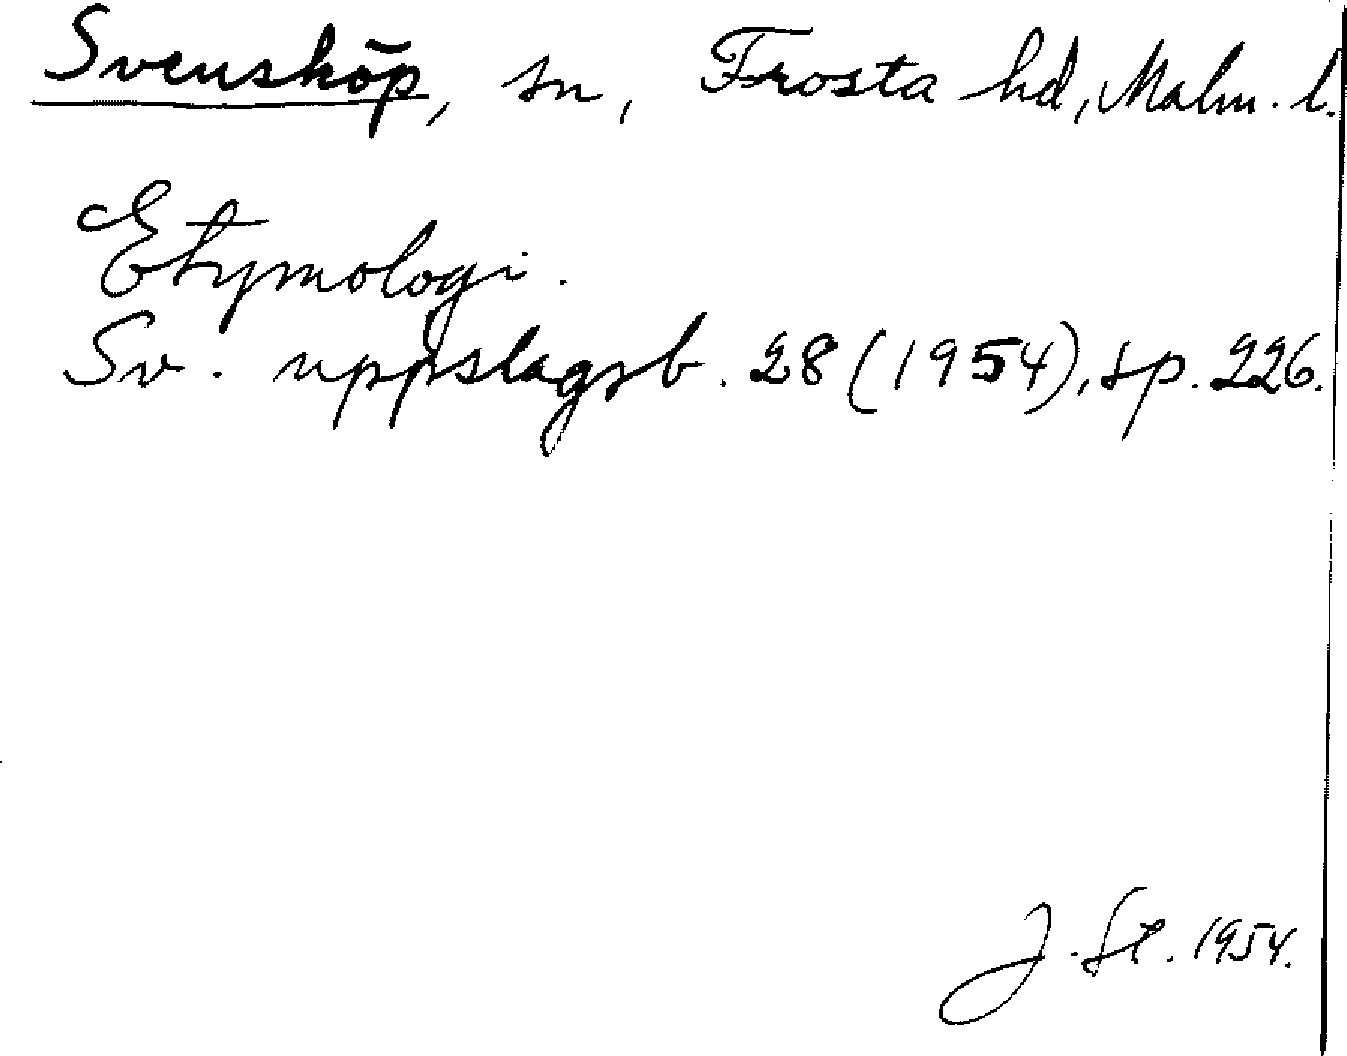 Svensköp, sn, Frosta hd, Malm. l.
Etymologi.
Sv. uppslagsb. 28 (1954), sp. 226.
J. St. 1954.